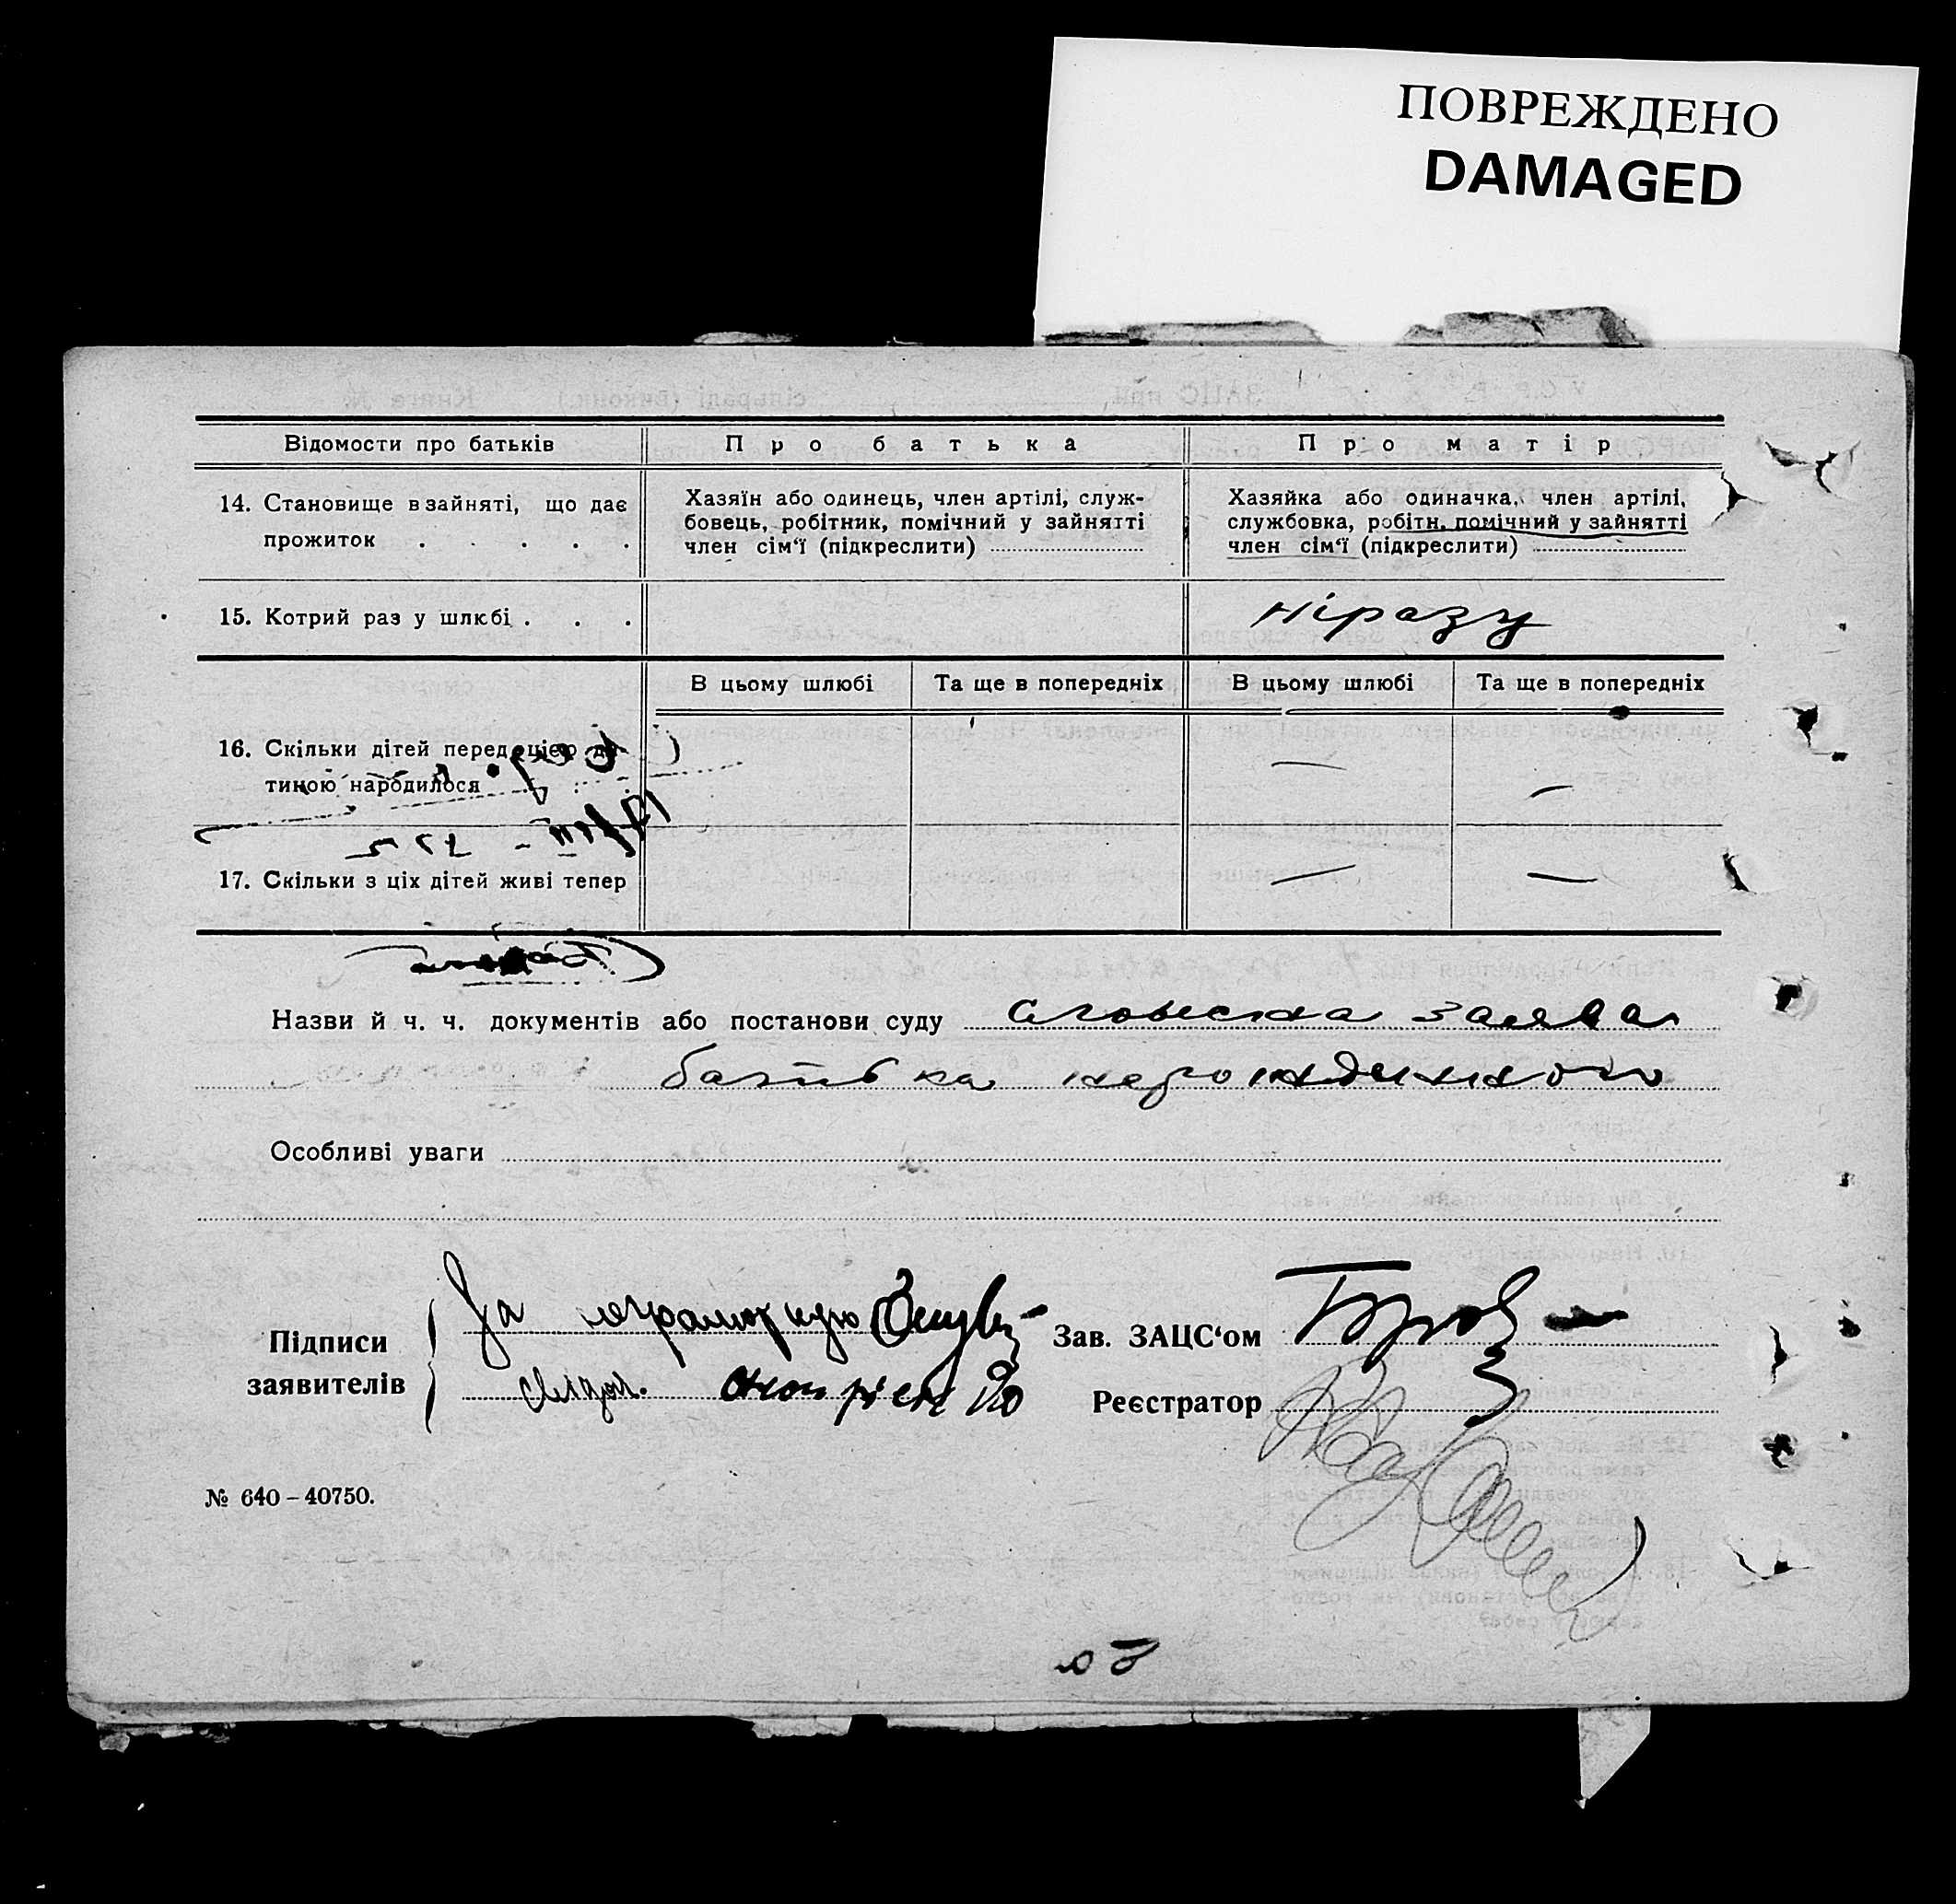 ПОВРЕЖДЕНО
DAMAGED
Відомости про батьків
Про батька
Про матір
14. Становище в зайняті, що дає
прожиток . . . . .
Хазяїн або одинець, член артілі, служ-
бовець, робітник, помічний у зайнятті
член сім‘ї (підкреслити)
Хазяйка або одиначка, член артілі,
службовка, робітн. помічний у зайнятті
член сім‘ї (підкреслити)
15. Котрий раз у шлюбі . . .
ніразу
В цьому шлюбі
Та ще в попередніх
В цьому шлюбі
Та ще в попередніх
16. Скільки дітей перед цією ди
тиною народилося
— —
17. Скільки з ціх дітей живі тепер
— —
Назви й ч. ч. документів або постанови суду словесна заява
батька
Особливі уваги
Підписи
заявителів
За
Зав. ЗАЦС‘ом
Реєстратор
№ 640 – 40750.